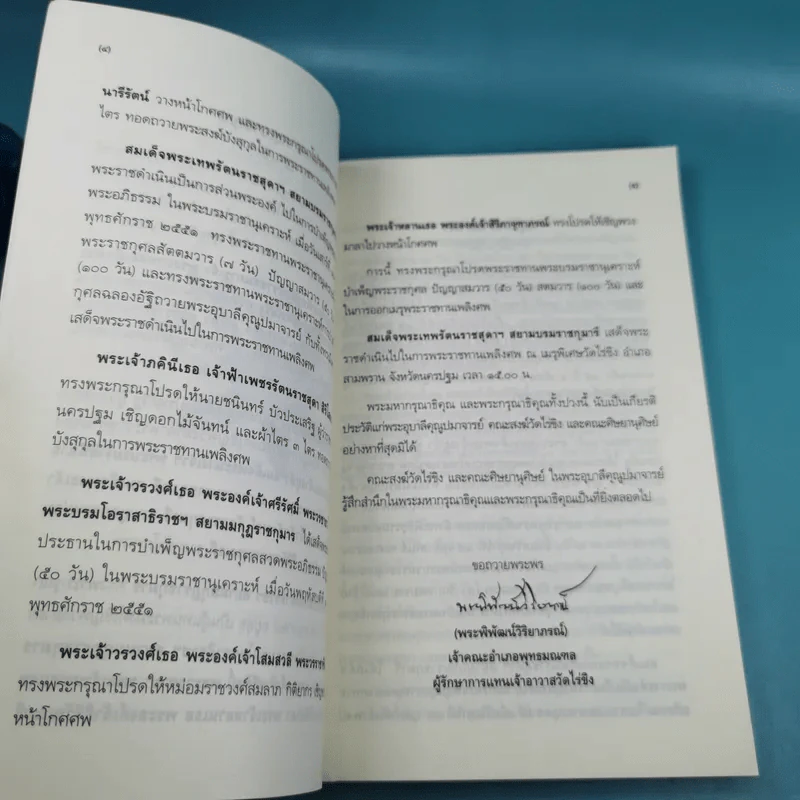 (๔)
นารีรัตน์ วางหน้าโกศศพ และทรงพระกรุณาโปรด
ไตร ทอดถวายพระสงฆ์บังสุกุลในการพระราชทานเพลิงศพ
สมเด็จพระเทพรัตนราชสุดาฯ สยามบรมราช
พระราชดำเนินเป็นการส่วนพระองค์ ไปในการบำเพ็ญ
พระอภิธรรม ในพระบรมราชานุเคราะห์ เมื่อวัน
พุทธศักราช ๒๕๕๑ ทรงพระราชทานพระราชานุเคราะห์
พระราชกุศลสัตตมวาร (๗ วัน) ปัญญาสมวาร
(๑๐๐ วัน) และทรงพระราชทานพระราชานุเคราะห์
กุศลฉลองอัฐิถวายพระอุบาลีคุณูปมาจารย์ กับทั้ง
เสด็จพระราชดำเนินไปในการพระราชทานเพลิงศพ
พระเจ้าภคินีเธอ เจ้าฟ้าเพชรรัตนราชสุดา
ทรงพระกรุณาโปรดให้นายชนินทร์ บัวประเสริฐ
นครปฐม เชิญดอกไม้จันทน์ และผ้าไตร ๓ ไตร
บังสุกุลในการพระราชทานเพลิงศพ
พระเจ้าวรวงศ์เธอ พระองค์เจ้าศรีรัศมิ์
พระบรมโอรสาธิราชฯ สยามมกุฎราชกุมาร ได้เสด็จ
ประธานในการบำเพ็ญพระราชกุศลสวดพระอภิธรรม
(๕๐ วัน) ในพระบรมราชานุเคราะห์ เมื่อวันพฤหัสบดีที่
พุทธศักราช ๒๕๕๑
พระเจ้าวรวงศ์เธอ พระองค์เจ้าโสมสวลี
ทรงพระกรุณาโปรดให้หม่อมราชวงศ์สมลาภ กิติยากร เชิญ
หน้าโกศศพ
(๕)
พระเจ้าหลานเธอ พระองค์เจ้าสิริภาจุฑาภรณ์ ทรงโปรดให้เชิญพวง
มาลาไปวางหน้าโกศศพ
การนี้ ทรงพระกรุณาโปรดพระราชทานพระบรมราชานุเคราะห์
บำเพ็ญพระราชกุศล ปัญญาสมวาร (๕๐ วัน) สตมวาร (๑๐๐ วัน) และ
ในการออกเมรุพระราชทานเพลิงศพ
สมเด็จพระเทพรัตนราชสุดาฯ สยามบรมราชกุมารี เสด็จพระ
ราชดำเนินไปในการพระราชทานเพลิงศพ ณ เมรุพิเศษวัดไร่ขิง อำเภอ
สามพราน จังหวัดนครปฐม เวลา ๑๕.๐๐ น.
พระมหากรุณาธิคุณ และพระกรุณาธิคุณทั้งปวงนี้ นับเป็นเกียรติ
ประวัติแก่พระอุบาลีคุณูปมาจารย์ คณะสงฆ์วัดไร่ขิง และคณะศิษยานุศิษย์
อย่างหาที่สุดมิได้
คณะสงฆ์วัดไร่ขิง และคณะศิษยานุศิษย์ ในพระอุบาลีคุณูปมาจารย์
รู้สึกสำนึกในพระมหากรุณาธิคุณและพระกรุณาธิคุณเป็นที่ยิ่งตลอดไป
ขอถวายพระพร
(พระพิพัฒน์วิริยาภรณ์)
เจ้าคณะอำเภอพุทธมณฑล
ผู้รักษาการแทนเจ้าอาวาสวัดไร่ขิง